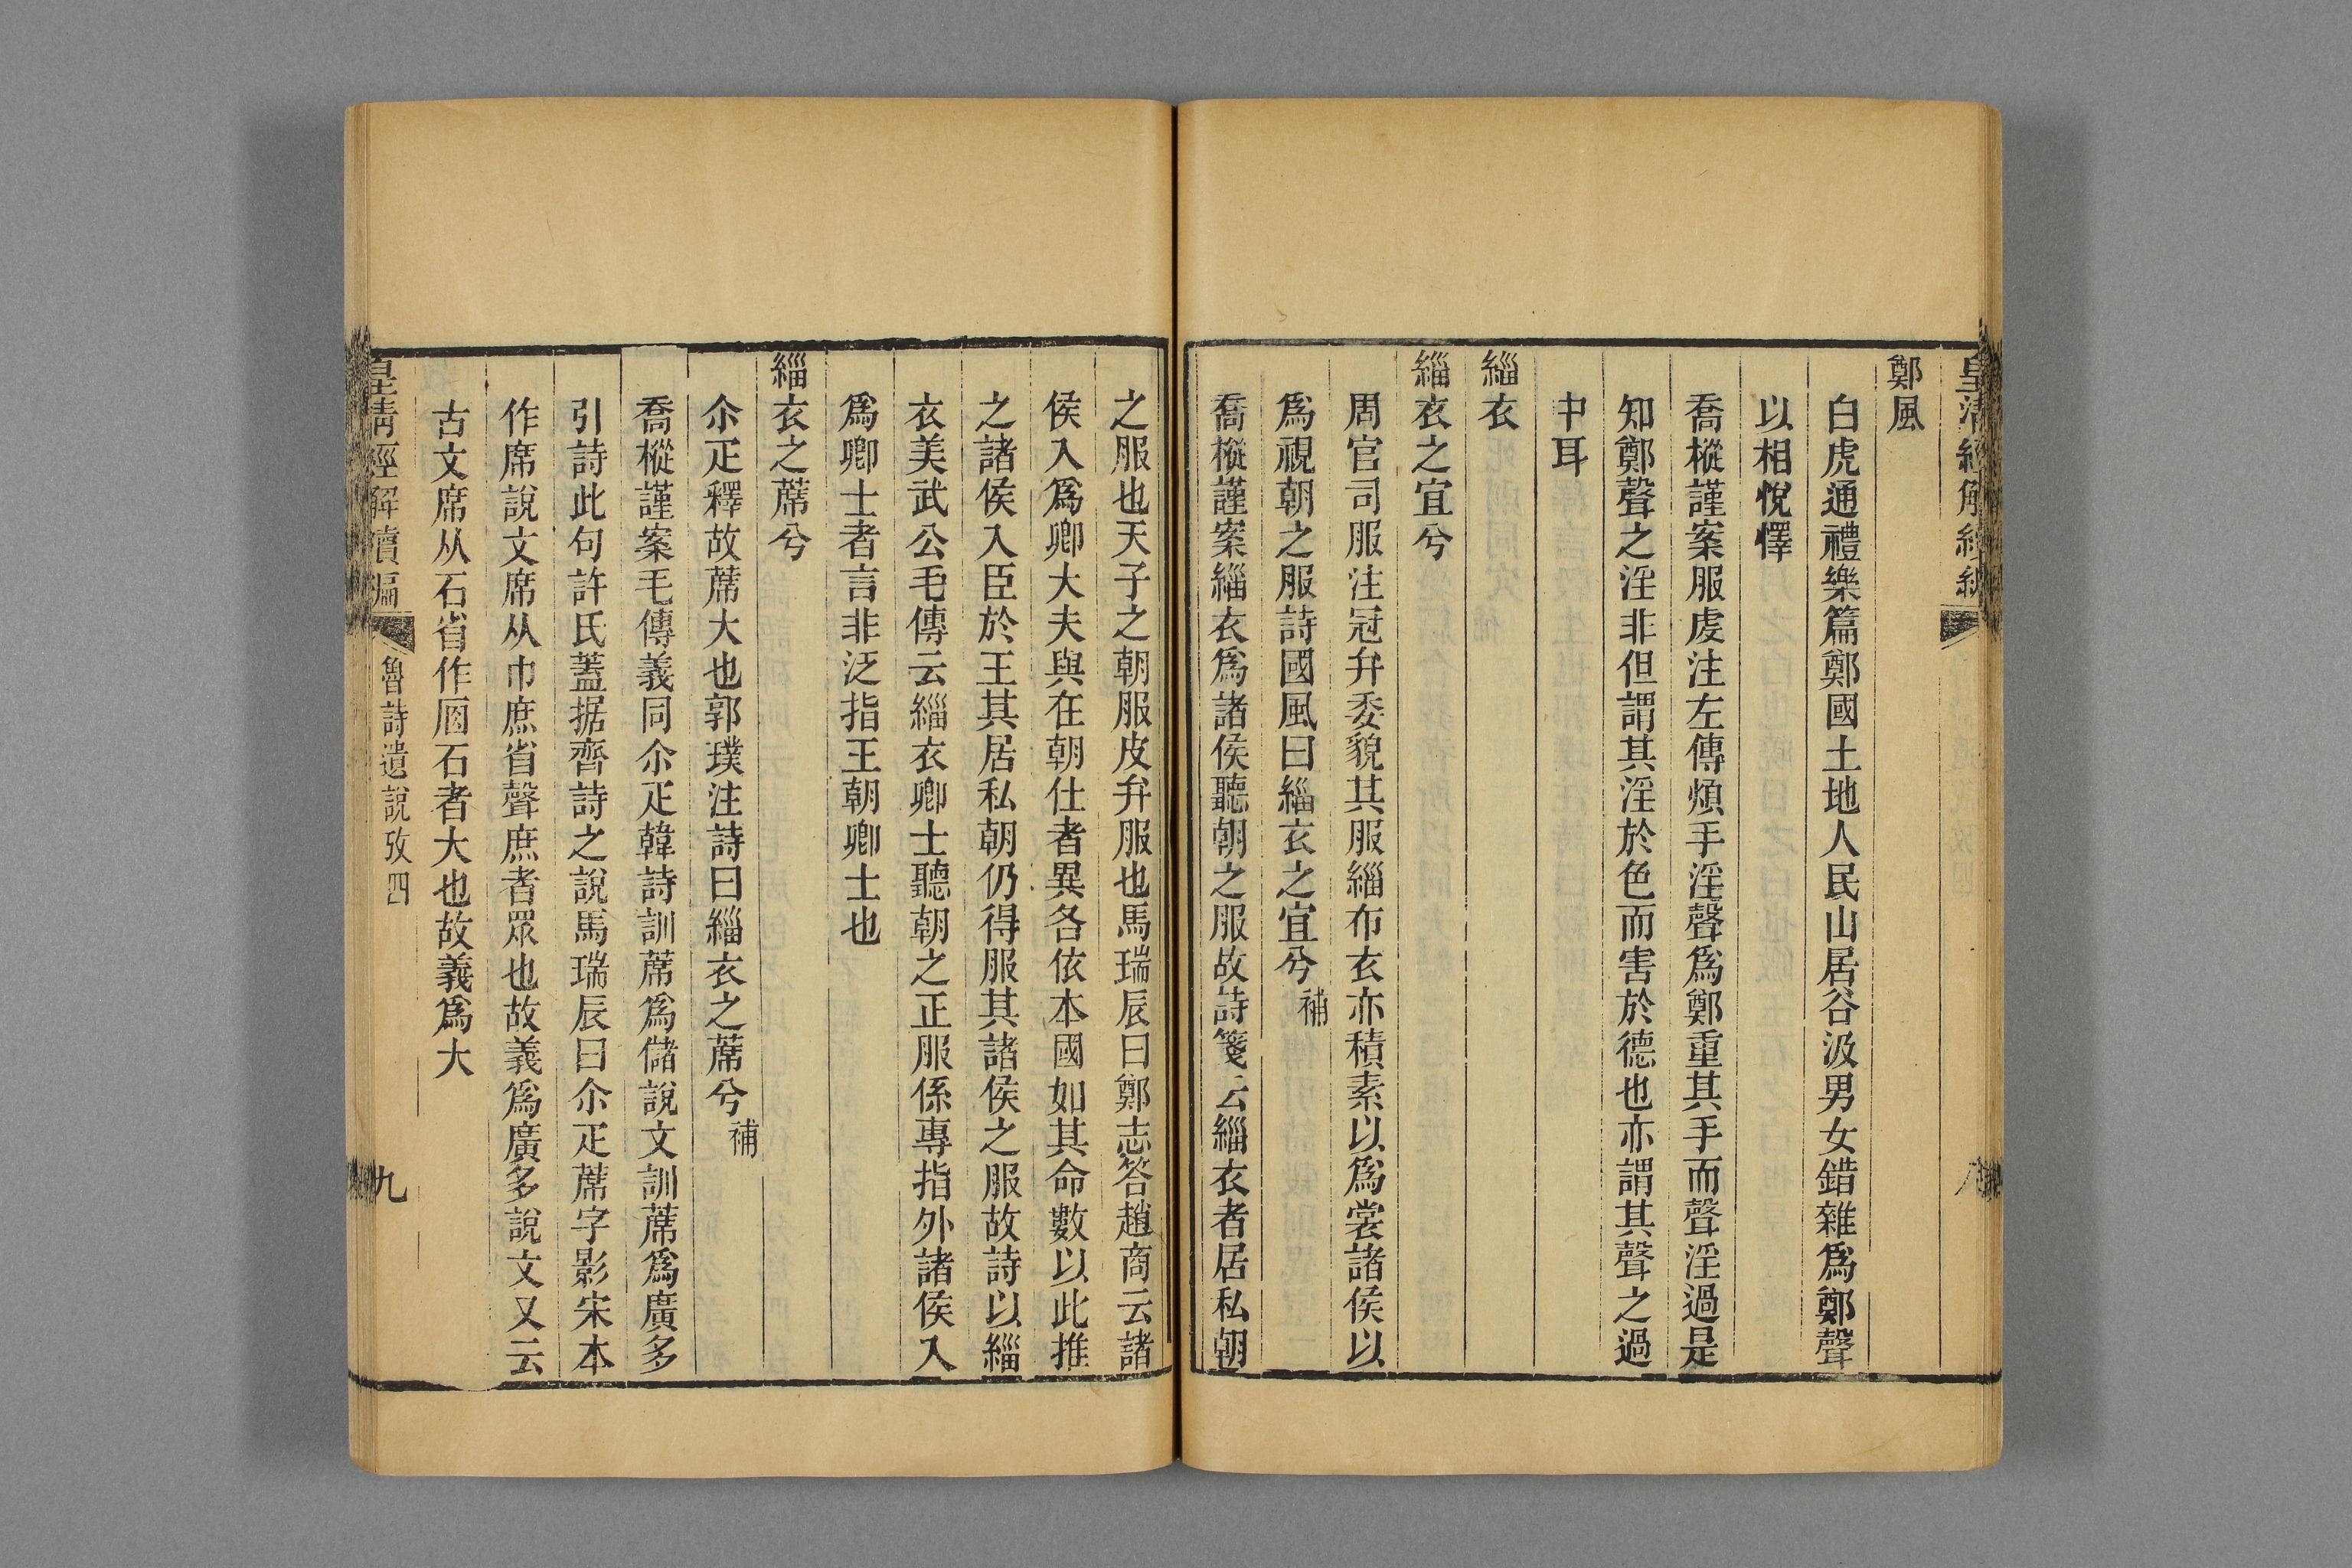 鄭風
白虎通禮樂篇鄭國土地人民山居谷汲男女錯雜爲鄭聲
以相悅懌
喬樅謹案服虔注左傳煩手淫聲爲鄭重其手而聲淫過是
知鄭聲之淫非但謂其淫於色而害於德也亦謂其聲之過
中耳
緇衣
緇衣之宜兮
周官司服注冠弁委貌其服緇布衣亦積素以爲裳諸侯以
爲視朝之服詩國風曰緇衣之宜兮補
喬樅謹案緇衣爲諸侯聽朝之服故詩箋云緇衣者居私朝
之服也天子之朝服皮弁服也馬瑞辰曰鄭志答趙商云諸
侯入爲卿大夫與在朝仕者異各依本國如其命數以此推
之諸侯入臣於王其居私朝仍得服其諸侯之服故詩以緇
衣美武公毛傳云緇衣卿士聽朝之正服係專指外諸侯入
爲卿士者言非泛指王朝卿士也
緇衣之蓆兮
尒疋釋故蓆大也郭璞注詩曰緇衣之蓆兮補
喬樅謹案毛傳義同尒疋韓詩訓蓆爲儲說文訓蓆爲廣多
引詩此句許氏蓋据齊詩之說馬瑞辰曰尒疋蓆字影宋本
作席說文席从巾庶省聲庶者眾也故義爲廣多說文又云
古文席从石省作㕉石者大也故義爲大
皇清經解續編
魯詩遺說攷四
九